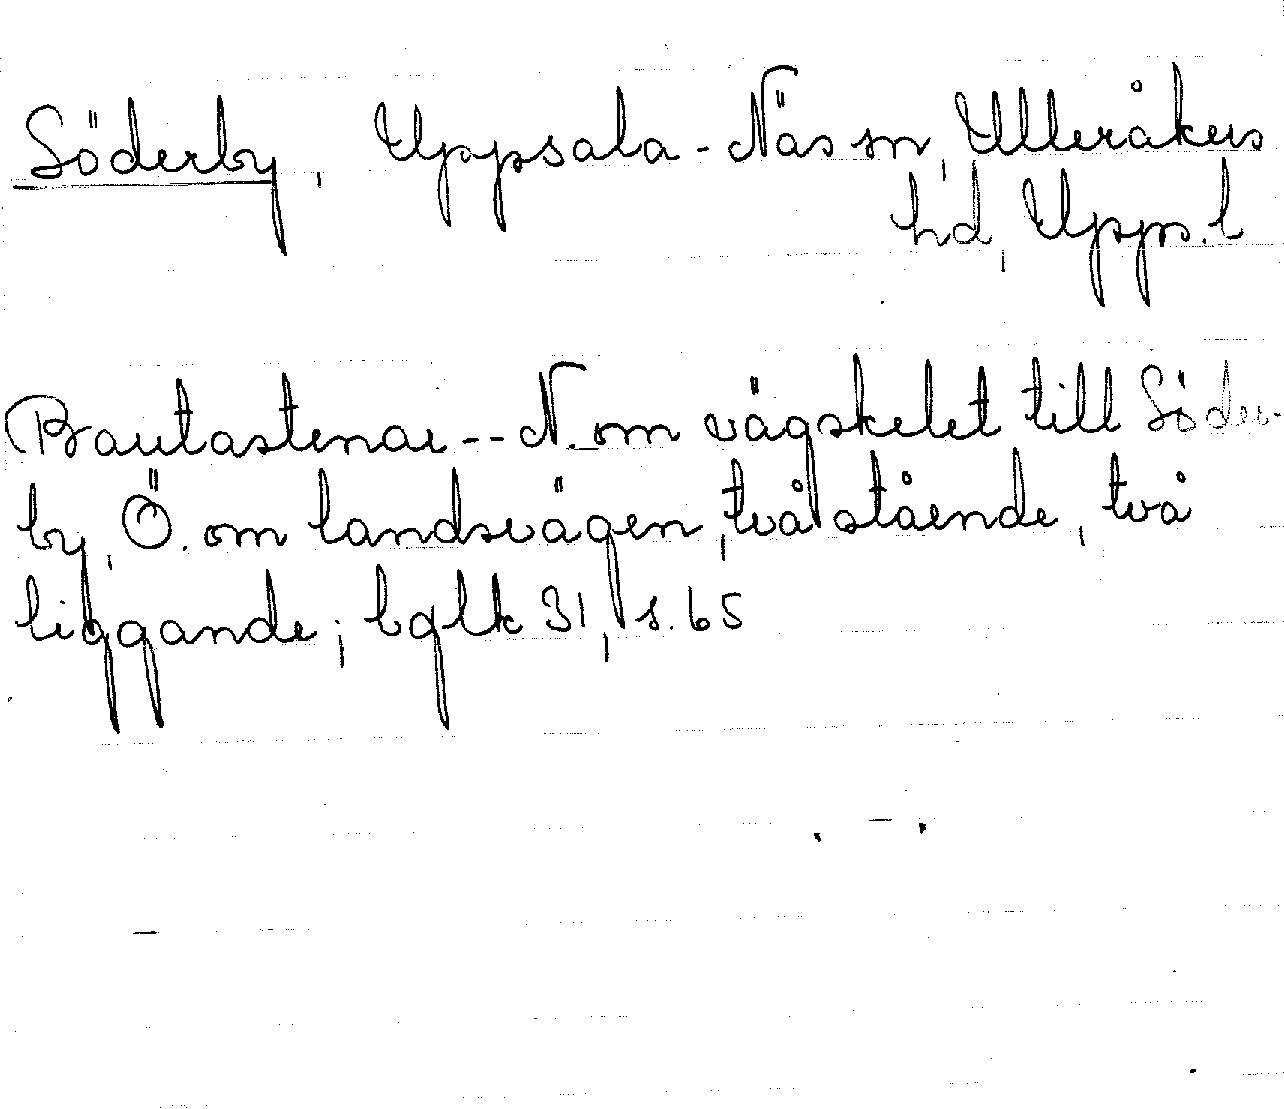 Söderby, Uppsala-Näs sn, Ulleråkers
hd, Upps. l
Bautastenar -- N. om vägskelet till Söder-
by, Ö. om landsvägen, två stående, två
liggande; bglk 31, s. 65